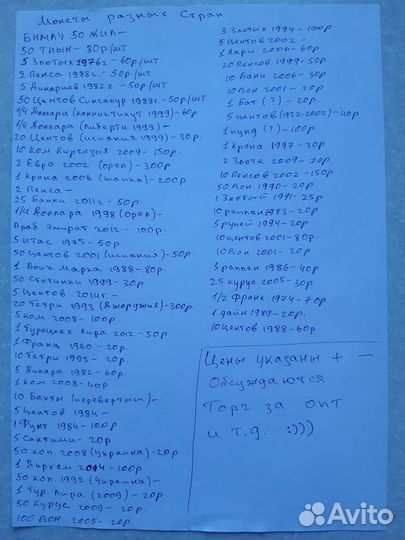 Монеты разных Стран
50 ЖИЛ –
50 ТИЫН – 80р./шт
5 Злотых 1976г – 60р./шт
2 Пенса 1988г. – 50р./шт
5 Динариев 1982г. – 50р./шт
50 Центов Сингапур 1988г – 50р/шт
1/4 Доллара (коннектикут 1999) – 60р
1/4 Доллара (Либерти 1999) –
20 Центов (испания 1999) – 30р.
10 Ком Киргизия 2009 – 150р.
2 Евро 2002 (орел) – 300р
1 Крона 2008 (шапка) – 200р
2 Пенса –
25 Бани 2011г – 50р.
1/4 Доллара 1998 (Орел) –
Араб Эмират 2012 – 100р.
5 1975 – 50р.
50 центов 2001 (испания) – 50р.
1 Дойч Марка 1988 – 80р.
50 Стотинки 1999 – 30р.
5 Центов 2014г –
20 Тетри 1993 (Джорджия) – 300р.
5 Ком 2008 – 100р.
1 Турецкая Лира 2012 – 50р
1 Франц 1960 – 20р.
10 Тетри 1993 – 20р.
5 Динара 1982 – 60р.
1 Ком 2008 – 40р
10 Бахты (перевертыш) –
5 Центов 1984 –
1 Фунт 1984 – 100р.
5 Сантими – 20р
50 коп. 2008 (Украина) – 20р
1 Дирхем 2014 – 100р
50 коп. 1992 (Украина) –
1 Тур. Лира (2009) – 20р
50 Куруе 2009 – 20р.
100 ВОН 2005 – 20р.
3 Злотых 1994 – 100р
5 Центов 2002 –
1 Лари 2006 – 60р
20 Пенсов 1999 – 50р
10 Бани 2006 – 30р
10 Вон 2001 – 20р
1 Бат (?) – 20р.
5 центов (1952-2002) – 40р
1 пунд (?) – 100р
1 Крона 1997 – 30р
2 Злоте 2009 – 70р
10 Пенсов 2002 – 150р
50 Вон 1990 – 20р
1 Злотый 1991 – 25р
10 раппен 1983 – 20р
5 рупей 1994 – 20р
10 центов 2001 – 80р.
10 Вон 2001 – 20р
5 раппен 1986 – 40р
25 курус 2005 – 30р
1/2 Франк 1974 – 70р
1 дайн 1989 – 20р.
10 Центов 1988 – 60р
Цены указаны + –
Обсуждаются
Торг за опт
и т.д. :)))
Avito